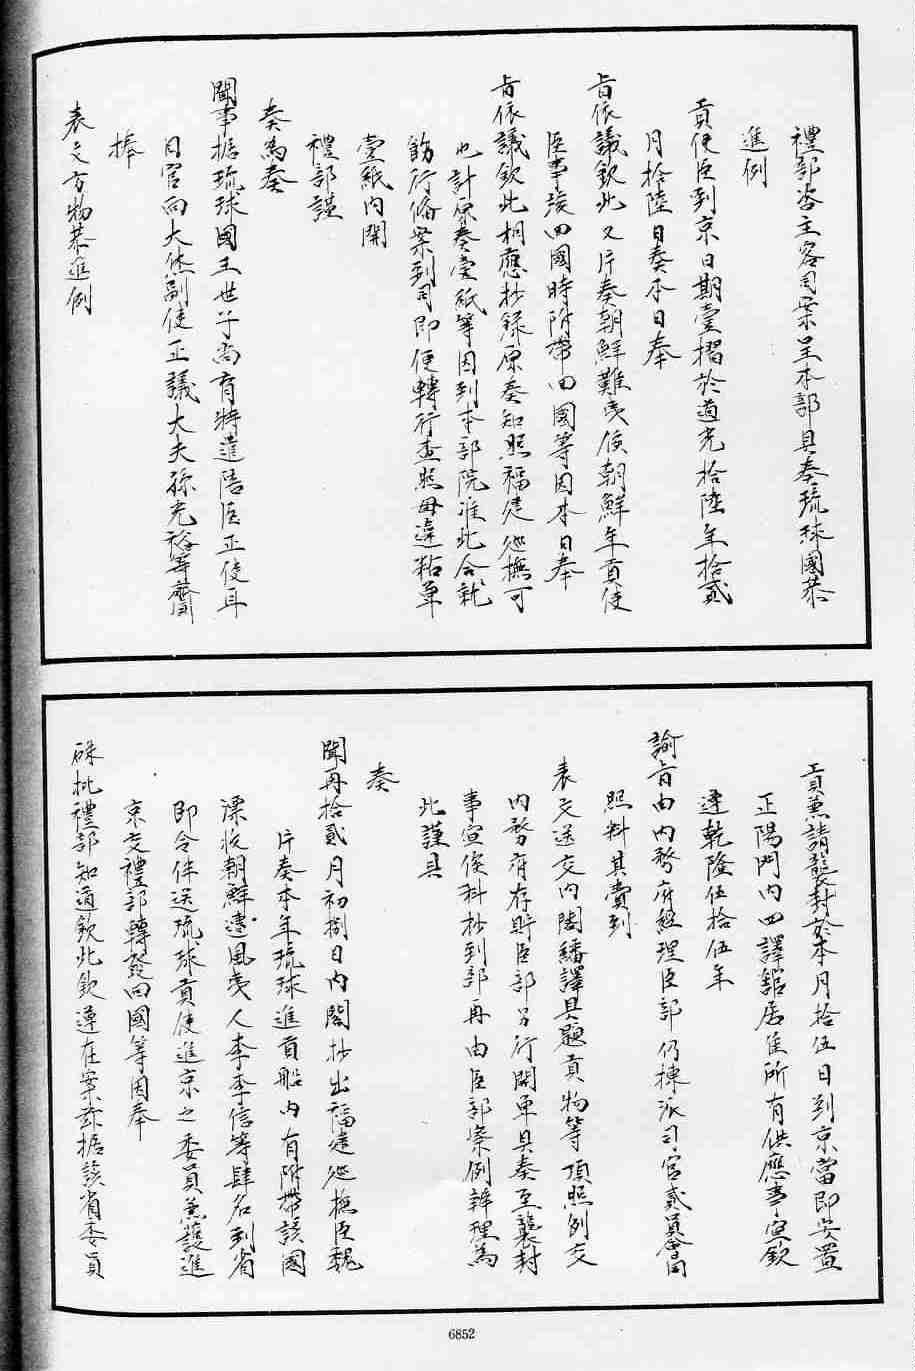 禮部咨主客司案呈本部具奏琉球國恭
進例
貢使臣到京日期壹摺於道光拾陸年拾貳
月拾陸日奏本日奉
旨依議欽此又片奏朝鮮難夷俟朝鮮年貢使
臣事竣回國時附帶回國等因本日奉
旨依議欽此相應抄錄原奏知照福建廵撫可
也計原奏壹紙等因到本部院准此合就
劄行脩案到司即便轉行查照毋違粘單
壹紙內開
禮部謹
奏為奏
聞事據琉球國王世子尚育特遣陪臣正使耳
目官向大烋副使正議大夫孫光裕等齎
捧
表文方物恭進例
貢兼請襲封於本月拾伍日到京當即安置
正陽門內四譯館居住所有供應事宜欽
遵乾隆伍拾伍年
諭旨由內務府經理臣部仍揀派司官貳員會同
照料其賫到
表文送交內閣繙譯具題貢物等項照例交
內務府存貯臣部另行開單具奏至襲封
事宜俟科抄到部再由臣部案例辦理為
此謹具
奏
聞再拾貳月初捌日內閣抄出福建廵撫臣魏
片奏本年琉球進貢船內有附帶該國
漂收朝鮮遭風夷人李季信等肆名到省
即令伴送琉球貢使進京之委員兼護進
京交禮部轉發回國等因奉
硃批禮部知道欽此欽遵在案茲據該省委員
6852